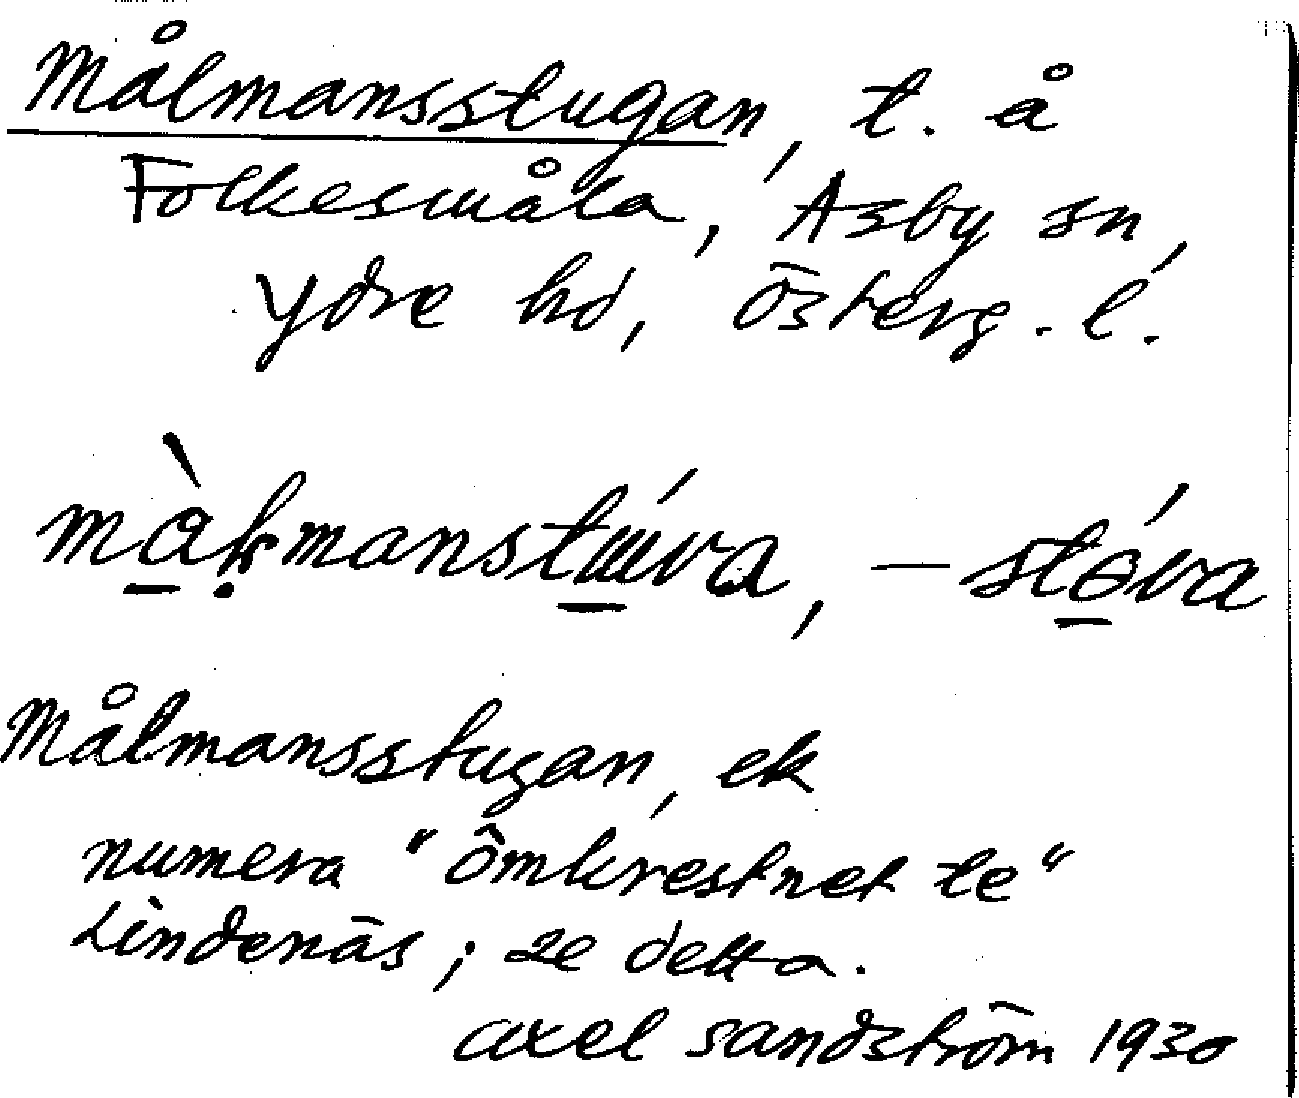 Målmansstugan, t. å
Folkesmåla, Asby sn,
Ydre hd, Österg. l.
målmanstuva, – stova
Målmansstugan, ek
numera "ômkrestnet te"
Lindenäs; se detta.
Axel Sandström 1930